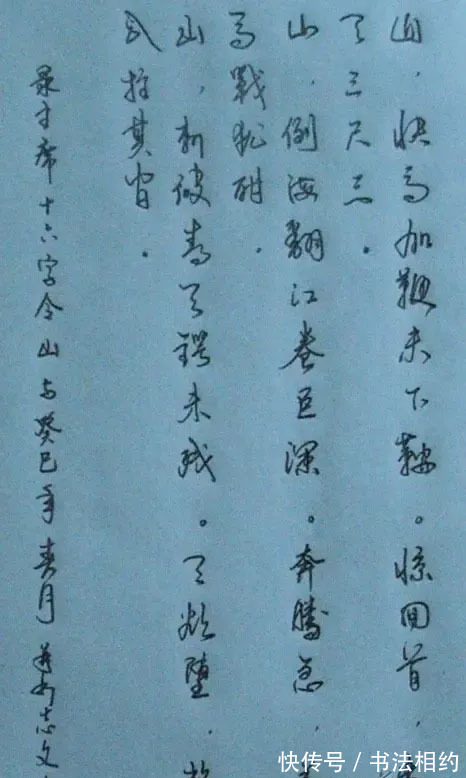 山，快马加鞭未下鞍。惊回首，
天三尺三。
山，倒海翻江卷巨澜。奔腾急，
马戰犹酣。
山，刺破青天锷未残。天欲堕，赖
以拄其间。
录主席十六字令山 于癸巳年春月 志文
快传号／书法相约